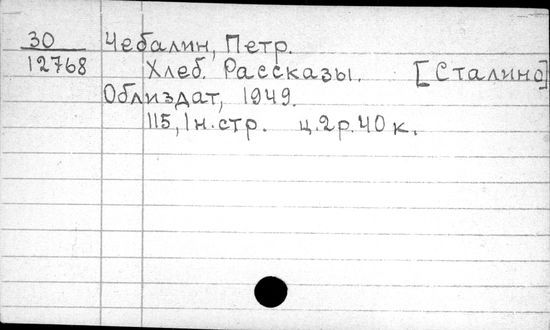 30 Чебалин, Петр.
12768 Хлеб. Рассказы. [Сталино]
Облиздат, 1949.
115, 1 н. стр. ц. 2 р. 40 к.